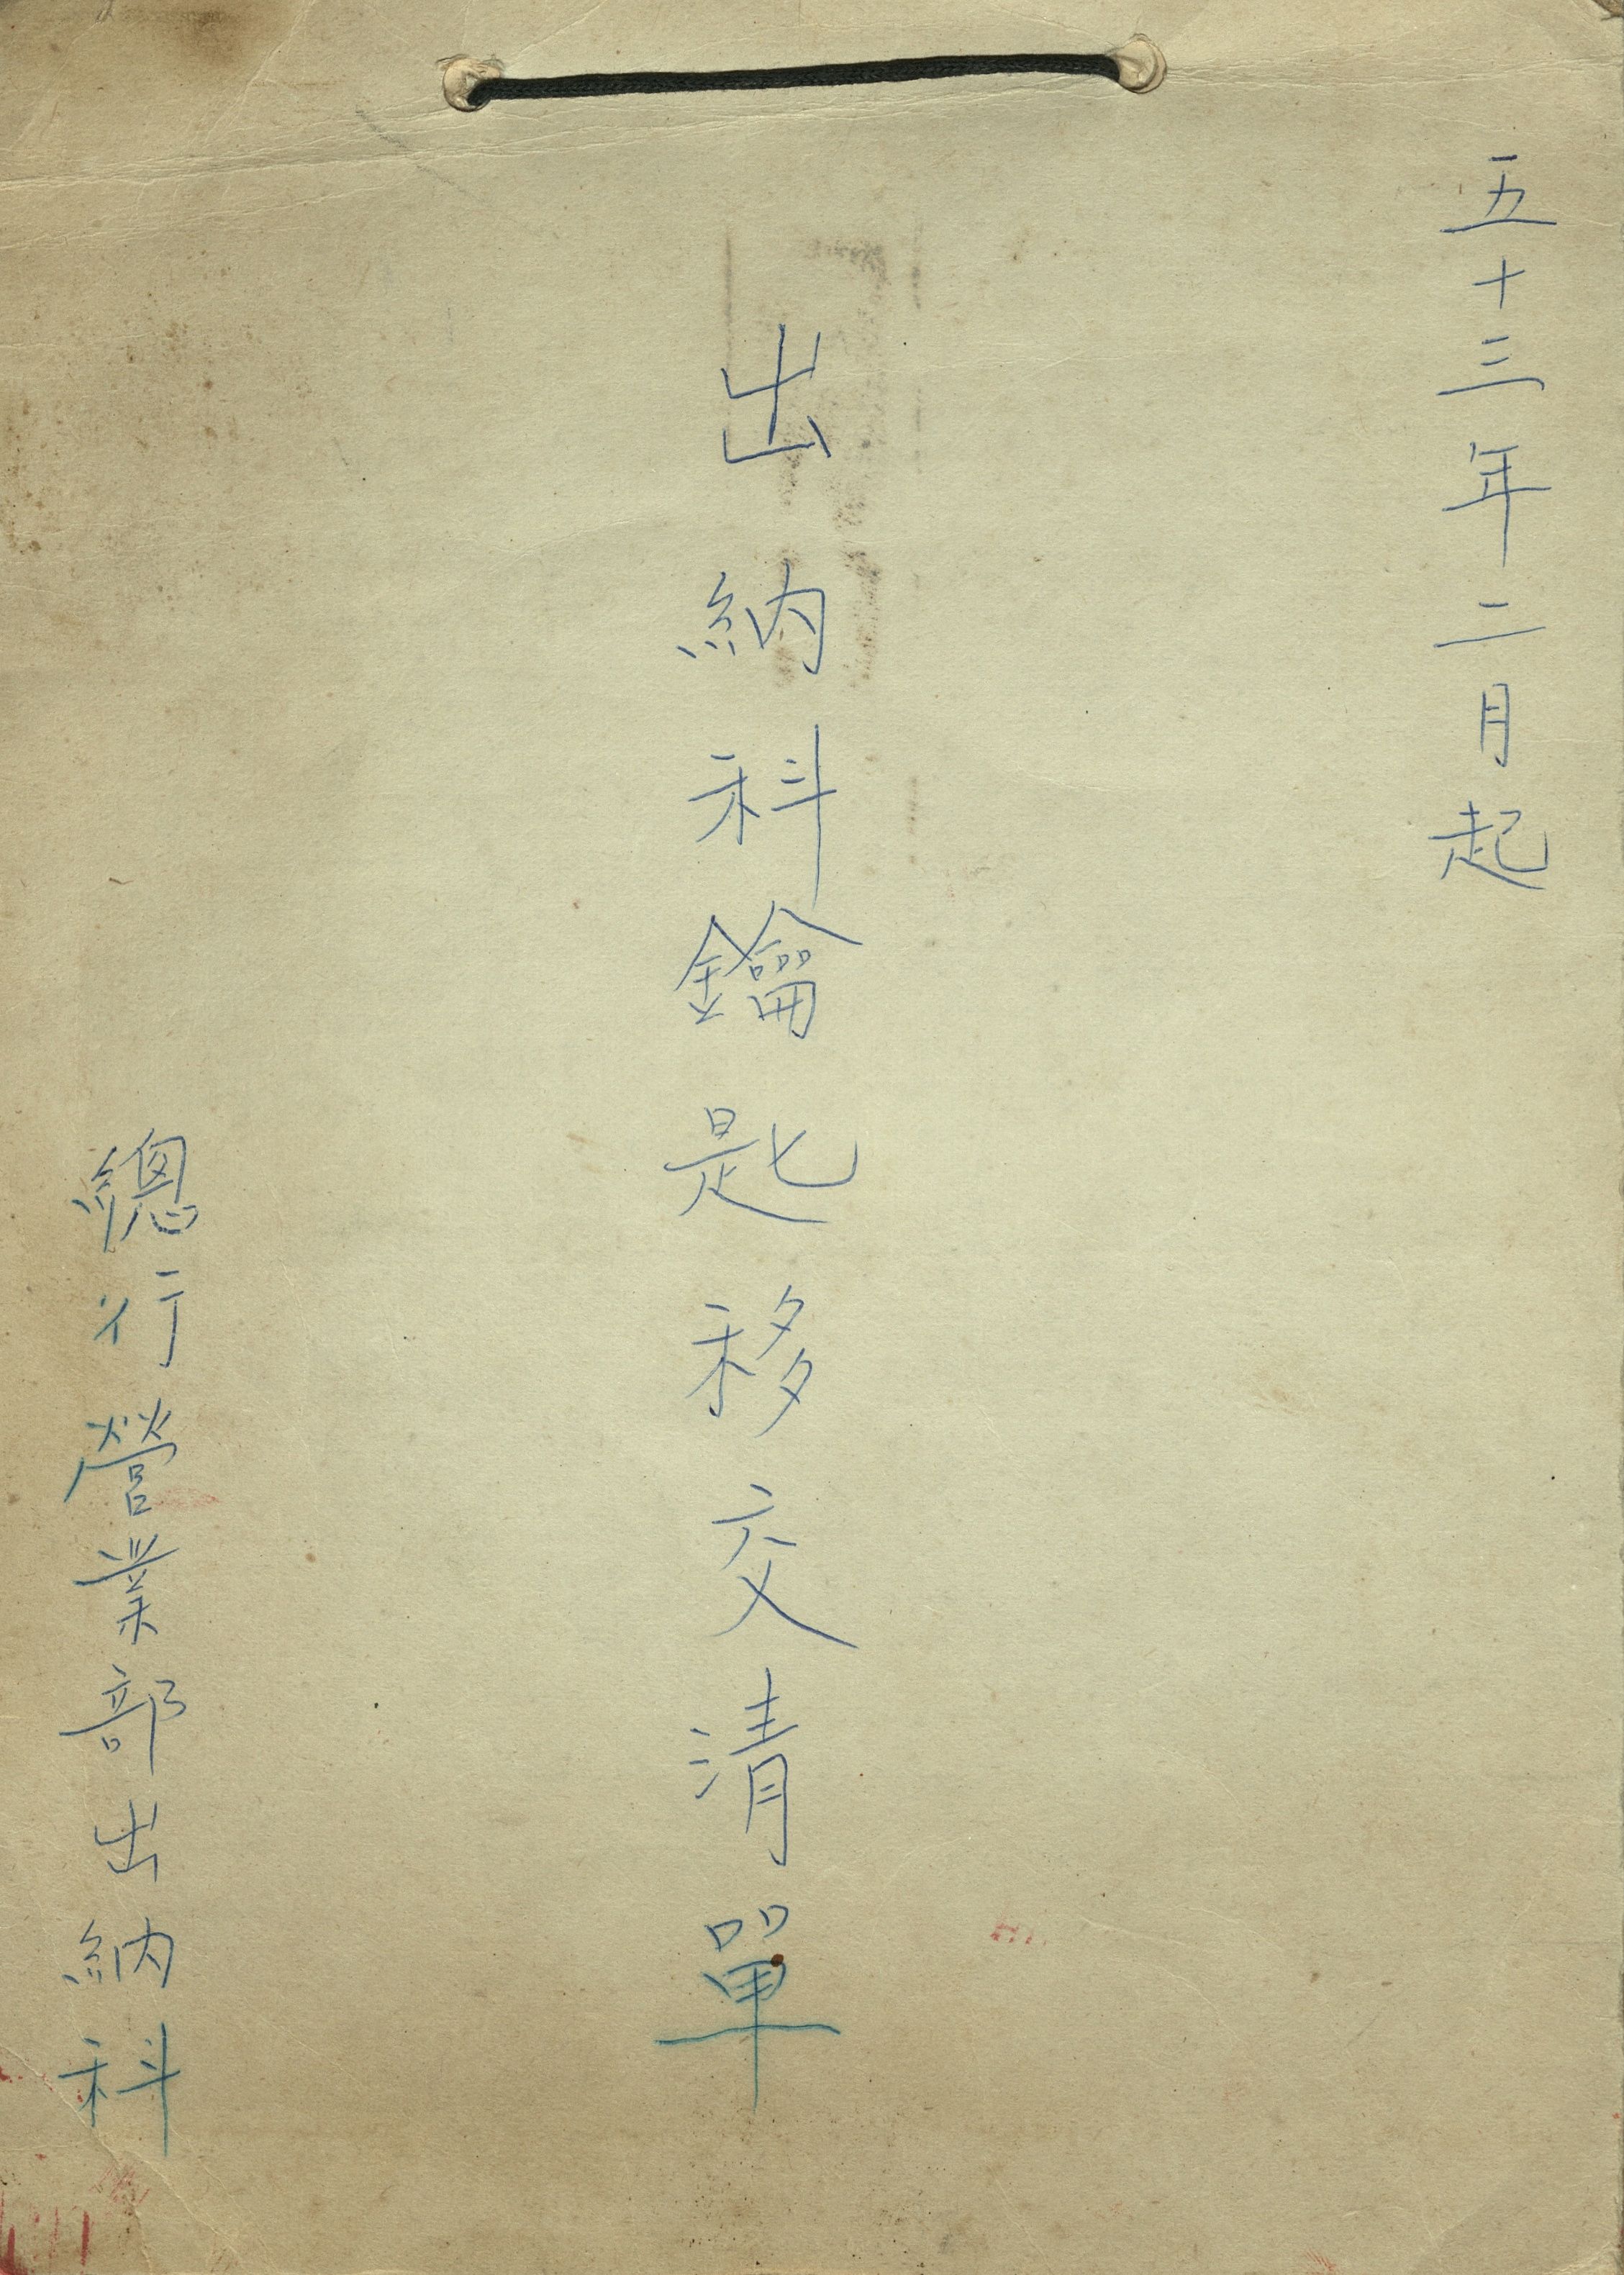 五十三年二月起
出納科鑰匙移交清單
總行營業部出納科